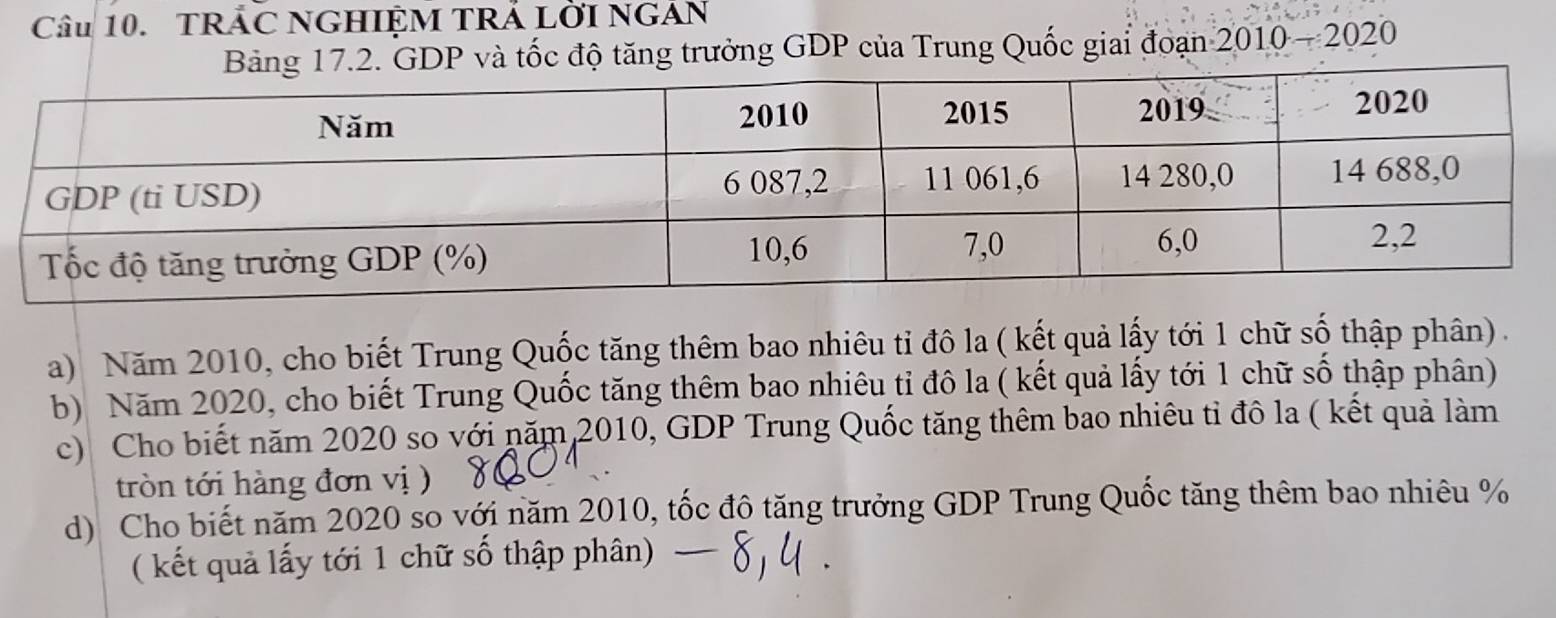 Câu 10. TRẮC NGHIỆM TRẢ LỜI NGẮN
Bảng 17.2. GDP và tốc độ tăng trưởng GDP của Trung Quốc giai đoạn 2010 – 2020
Năm 2010 2015 2019 2020
GDP (tỉ USD) 6 087,2 11 061,6 14 280,0 14 688,0
Tốc độ tăng trưởng GDP (%) 10,6 7,0 6,0 2,2
a) Năm 2010, cho biết Trung Quốc tăng thêm bao nhiêu tỉ đô la ( kết quả lấy tới 1 chữ số thập phân) .
b) Năm 2020, cho biết Trung Quốc tăng thêm bao nhiêu tỉ đô la ( kết quả lấy tới 1 chữ số thập phân)
c) Cho biết năm 2020 so với năm 2010, GDP Trung Quốc tăng thêm bao nhiêu tỉ đô la ( kết quả làm
tròn tới hàng đơn vị ) 8601
d) Cho biết năm 2020 so với năm 2010, tốc đô tăng trưởng GDP Trung Quốc tăng thêm bao nhiêu %
( kết quả lấy tới 1 chữ số thập phân) — 8,4 .